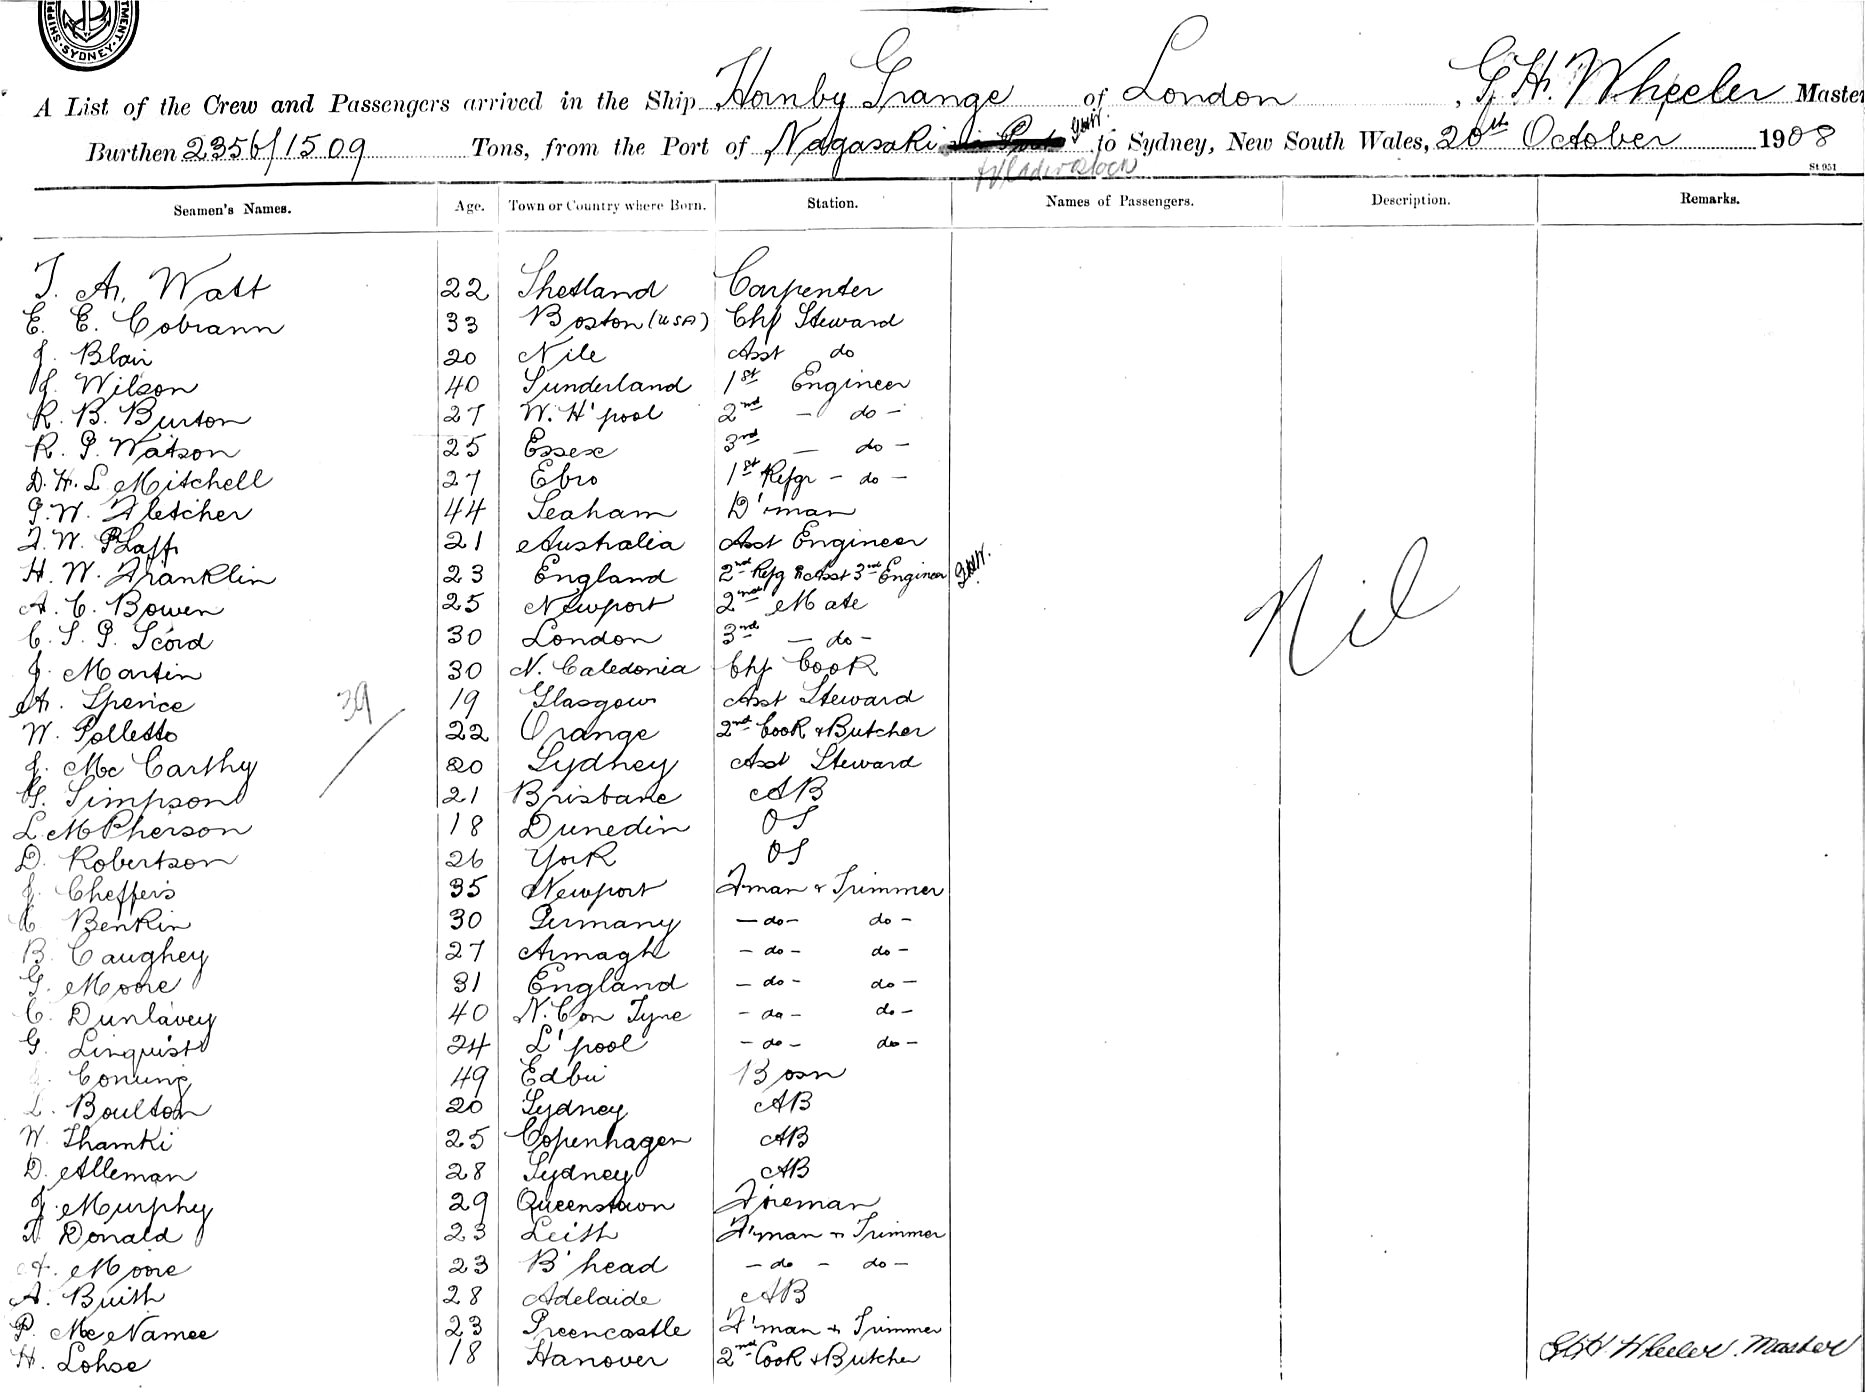 SYDNEY
A List of the Crew and Passengers arrived in the Ship Hornby Grange of London, G. H. Wheeler Master
Burthen 2356/1509 Tons, from the Port of Nagasaki G.H.W. to Sydney, New South Wales, 20th October 1908
& Vladivostock
St 951
Seamen's Names. Age. Town or Country where Born. Station. Names of Passengers. Description. Remarks.
T. A. Watt 22 Shetland Carpenter
E. E. Cobrann 33 Boston (USA) Chf Steward
J. Blair 20 Nile Asst do
J. Wilson 40 Sunderland 1st Engineer
R. B. Burton 27 W. H'pool 2nd - do -
R. G. Watson 25 Essex 3rd - do -
D. H. L Mitchell 27 Ebro 1st Refgr - do -
G. W. Fletcher 44 Seaham D'man
F. W. 21 Australia Asst Engineer
H. W. Franklin 23 England 2nd Refg & Asst 3rd Engineer G.H.W.
A. C. Bowen 25 Newport 2nd Mate
C. S. G. Scord 30 London 3rd - do -
J. Martin 30 N. Caledonia Chf Cook
A. Spence 19 Glasgow Asst Steward
39
W. Polletto 22 Orange 2nd Cook & Butcher
J. Mc Carthy 20 Sydney Asst Steward
G. Simpson 21 Brisbane AB
L. McPherson 18 Dunedin OS
D. Robertson 26 York OS
J. Cheffers 35 Newport F'man & Trimmer
C Benkin 30 Germany - do - do -
B. Caughey 27 Armagh - do - do -
G. Moore 31 England - do - do -
C. Dunlavey 40 N. C on Tyne - do - do -
G. Linquist 24 L'pool - do - do -
Conung 49 Edbu Bosn
L. Boulton 20 Sydney AB
W. Thamki 25 Copenhagen AB
D. Alleman 28 Sydney AB
J. Murphy 29 Queenstown Fireman
Donald 23 Leith F'man & Trimmer
A. Moore 23 B'head - do - do -
A. Buith 28 Adelaide AB
P. McNamee 23 Greencastle F'man & Trimmer
H. Lohse 18 Hanover 2nd Cook & Butcher
Nil
G H Wheeler. Master